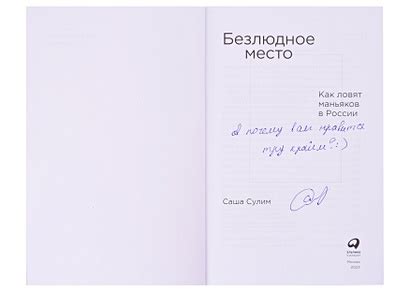 Безлюдное
место
Как ловят
маньяков
в России
А почему вам нравится
тру крайм? :)
Саша Сулим
Москва